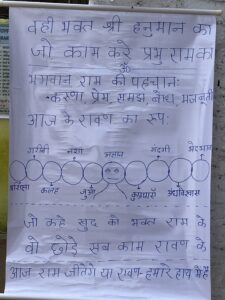 वही भक्त श्री हनुमान का
जो काम करे प्रभु राम का
ॐ
भगवान राम की पहचान:
करुणा, प्रेम, समझ, बोध, मजबूती
आज के रावण का रूप:
गरीबी नशा गंदगी भेदभाव
कलह जुआँ अंधविश्वास
जो कहे खुद को भक्त राम के
वो छोड़े सब काम रावण के
आज राम जीतेंगे या रावण-हमारे हाथ में है